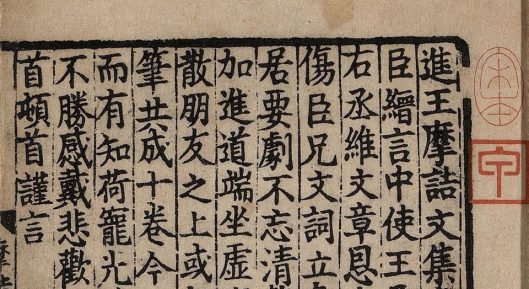 宋本
甲
進王摩詰文集
臣縉言中使王
右丞維文章恩
傷臣兄文詞立
居要劇不忘清
加進道端坐虛
散朋友之上或
筆共成十卷今
而有知荷寵光
不勝感戴悲歡
首頓首謹言